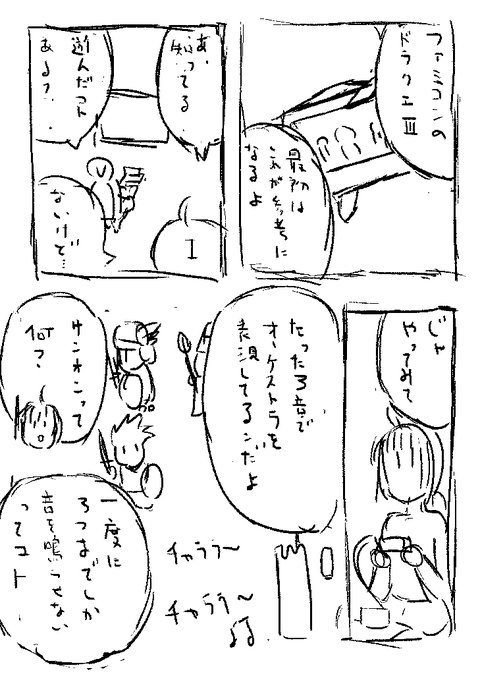 ファミコンの
ドラクエⅢ
最初は
これが参考に
なるよ
あ、
知ってる
遊んだコト
ある?
ないけど…
じゃ
やってみて
たった3音で
オーケストラを
表現してるンだよ
サンオンって
何?
一度に
3つまでしか
音を鳴らせない
ってコト
チャララ〜
チャララ〜